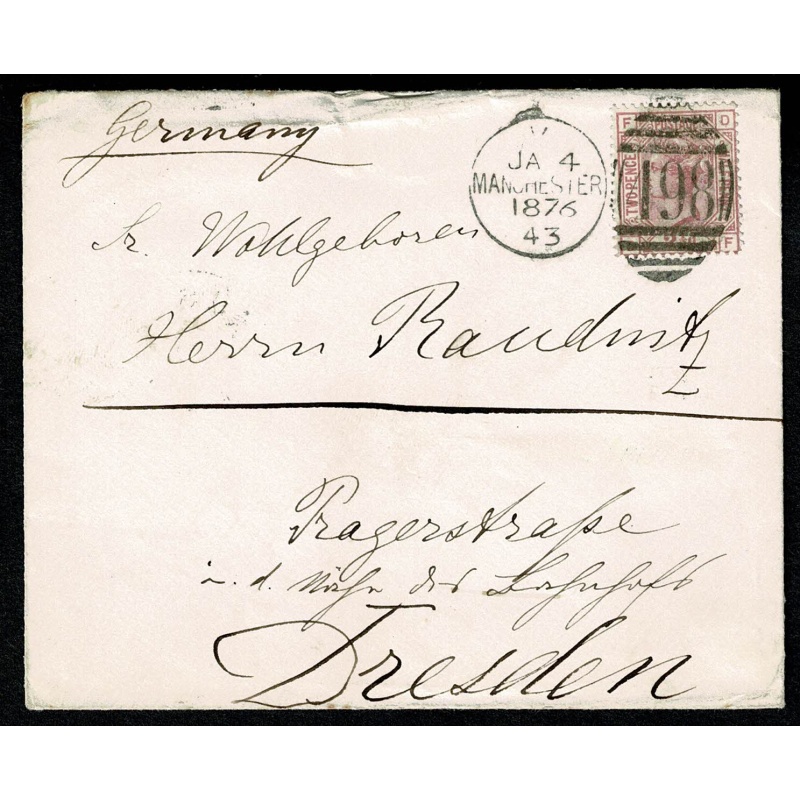 Germany
V
JA 4
MANCHESTER
1876
43
F D
TWO PENCE
498
F
Sr. Wohlgeboren
Herrn Raudnitz
Pragerstraße
i. d. Nähe des Bahnhofs
Dresden